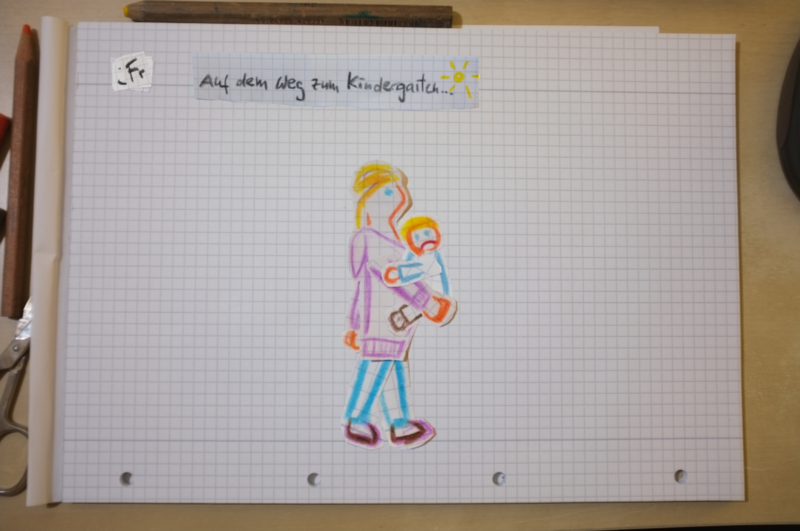 Fr
Auf dem Weg zum Kindergarten...